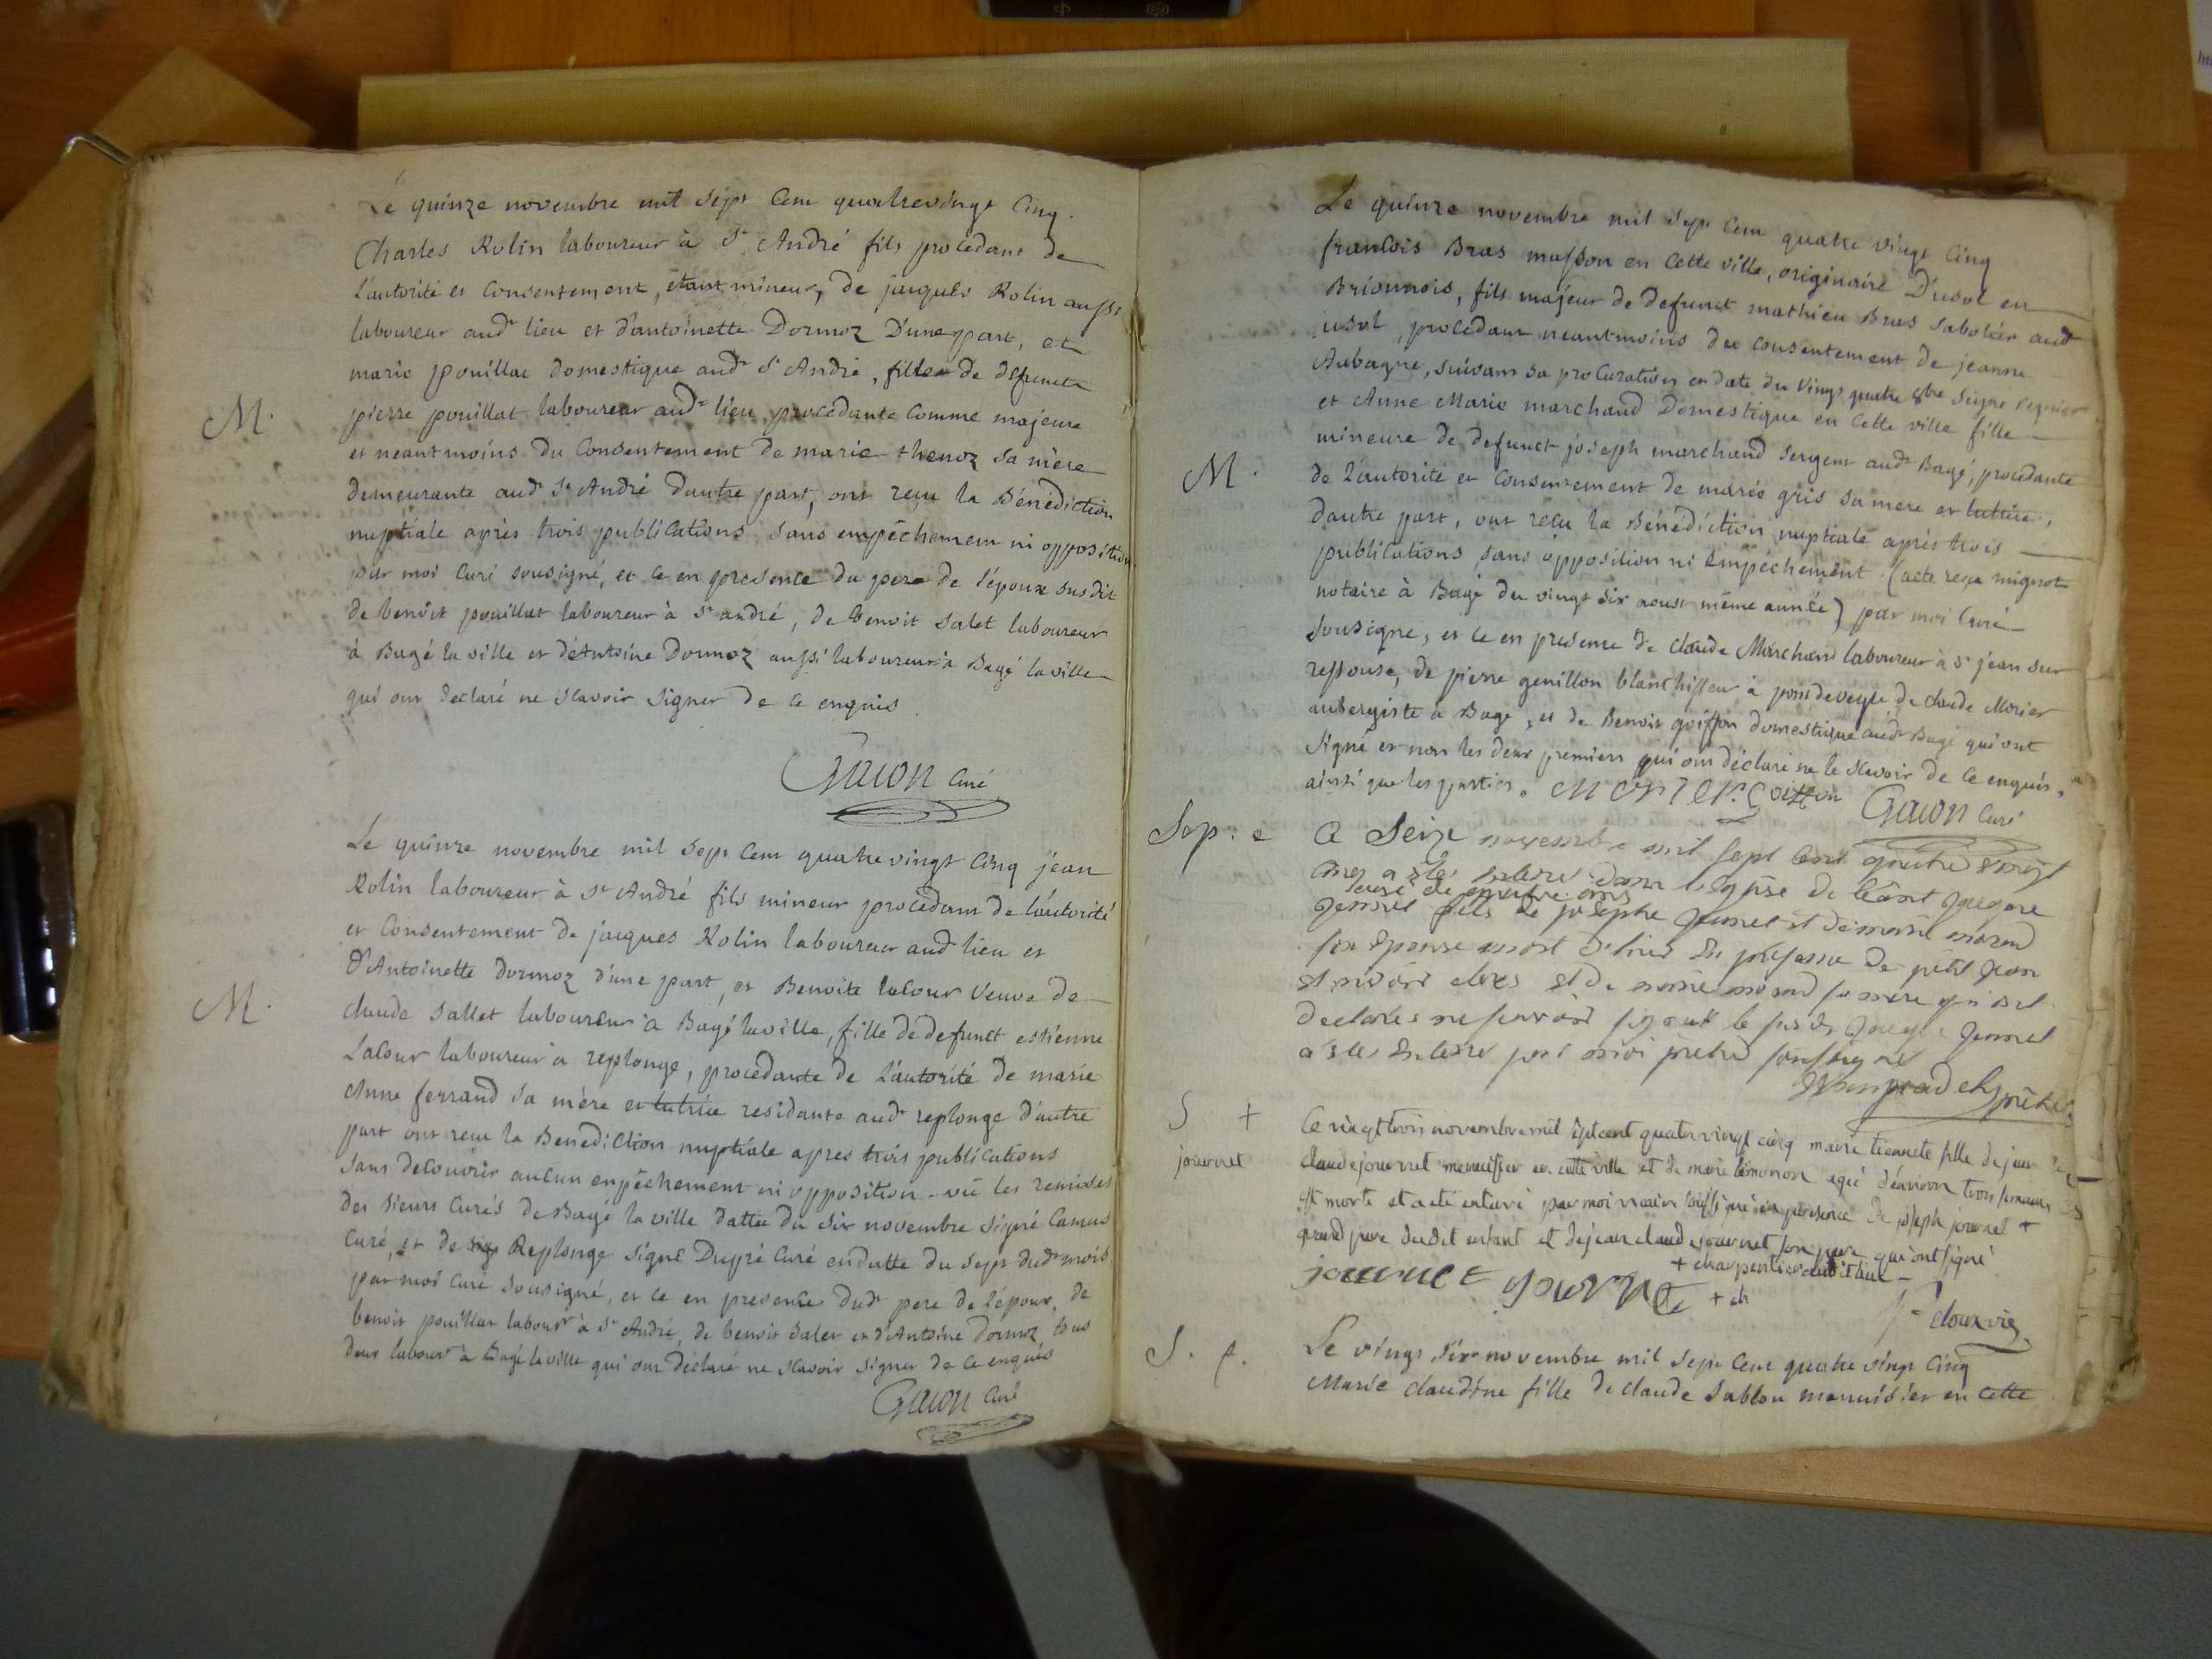 Le quinze novembre mil sept cent quatrevingt cinq.
Charles Rolin laboureur à St André fils procédant de
l'autorité et consentement, étant mineur, de jacques Rolin aussi
laboureur audt lieu et d'antoinette Dormoz D'une part, et
M.
marie pouillat domestique audt St André, fille de défunct
pierre pouillat laboureur audt lieu procedante comme majeure
et neantmoins du consentement de marie thenoz sa mère
demeurante audt St André dautre part, ont reçu la Bénédiction
nuptiale après trois publications sans empêchement ni opposition
par moi curé sousigné, et ce en presence du pere de l'époux susdit
de benoit pouillat laboureur à St andré, de benoit salet laboureur
à Bagé la ville et d'Antoine Dormoz aussi laboureur à Bagé la ville
qui ont declaré ne scavoir signer de ce enquis
curé
Le quinze novembre mil sept cent quatre vingt cinq jean
Rolin laboureur à St André fils mineur procedant de l'autorité
et consentement de jacques Rolin laboureur audt lieu et
M.
d'Antoinette dormoz d'une part, et Benoite lacour veuve de
claude sallet laboureur à Bagé la ville, fille de defunct estienne
Lacour laboureur à replonge, procedante de l'autorité de marie
Anne ferrand sa mère et tutrice residante audt replonge d'autre
part ont reçu la Benediction nuptiale apres trois publications
sans decouvrir aucun empêchement ni opposition - vû les remises
des sieurs Curés de Bagé la ville dattée du six novembre signé Camus
Curé, et de Replonge signé Dupré Curé en datte du sept dudt mois
par moi Curé sousigné, et ce en presence dudt pere de l'époux, de
benoit pouillat labourr à St André, de benoit salet et d'Antoine dormoz tous
deux labourr à Bagé la ville qui ont déclaré ne scavoir signer de ce enquis
curé
Le quinze novembre mil sept cent quatre vingt cinq
francois Bras masson en cette ville, originaire D'usol en
Brionnois, fils majeur de defunct mathieu Bras sabotier audt
usol, procedant neantmoins du consentement de jeanne
Aubagne, suivant sa procuration en date du vingt quatre 8bre signé regnier
et Anne Marie marchand Domestique en cette ville fille
M.
mineure de defunct joseph marchand sergent audt Bagé, procedante
de l'autorité et consentement de marie gris sa mere et tutrice,
dautre part, ont reçu la Bénédiction nuptiale après trois
publications, sans opposition ni empêchement (acte reçu mignot
notaire à Bagé du vingt six aoust même année) par moi Curé
sousigné, et ce en presence de claude Marchand laboureur à St jean sur
ressouse, de pierre genillon blanchisseur à pondeveyle de claude Morier
aubergiste à Bagé, et de Benoit goiffon domestique audt Bagé qui ont
signé et non les deux premiers qui ont déclaré ne le scavoir de ce enquis,
ainsi que les parties. Goiffon curé
Sep.
seize novembre mil sept cent quatre vingt
cinq a été dans l'église de
âgé de quatre ans
fils de josephe et de marie morand
son épouse mort d'hier en présence de petit jean
et de marie morand sa mere qui ont
declarés ne savoir signer
par moi prêtre soussigné
prêtre
S +
journet
Ce vingt trois novembre mil sept cent quatre vingt cinq marie fille de jean
claude journet menuisier en cette ville et de marie agée d'environ trois semaines
est morte et a été enterré par moi vicaire soussigné en presence de joseph journet +
grand pere dudit enfant et de jean claude journet son pere qui ont signé
+ charpentier audit lieu
journet journet + ch
S.
Le vingt six novembre mil sept cent quatre vingt cinq
Marie claudine fille de claude sablon menuisier en cette